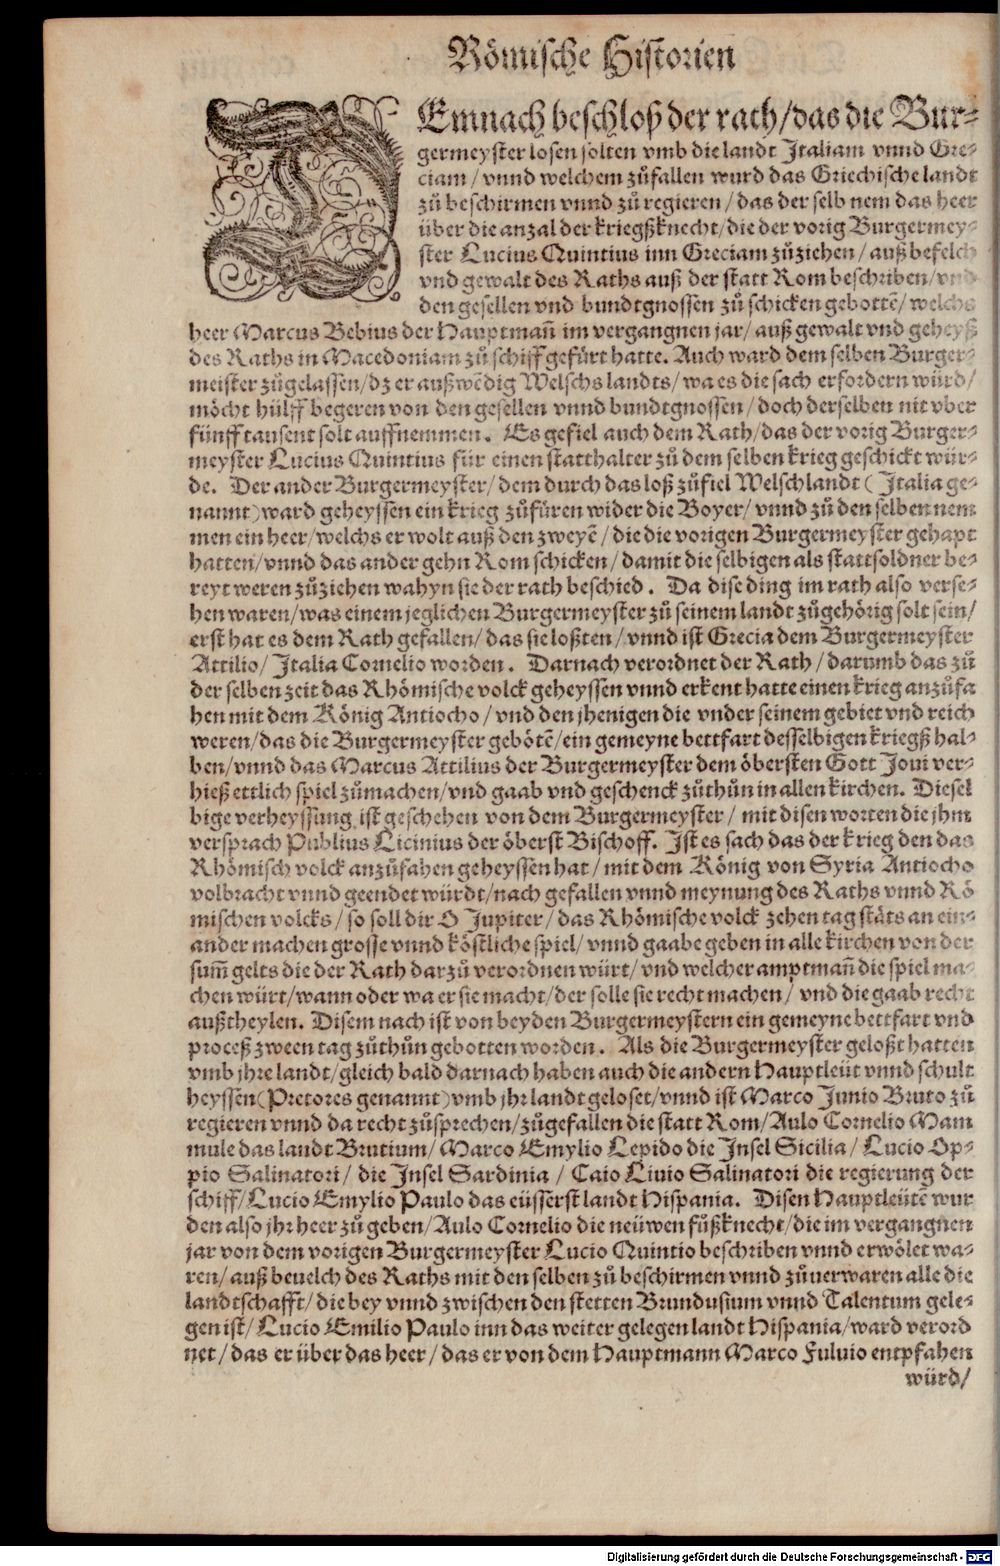 Römische Historien
DEmnach beschloß der rath/das die Bur-
germeyster losen solten vmb die landt Italiam vnnd Gre-
ciam/vnnd welchem zůfallen wurd das Griechische landt
zů beschirmen vnnd zů regieren/das der selb nem das heer
über die anzal der kriegßknecht/die der vorig Burgermey-
ster Lucius Quintius inn Greciam zůziehen/auß befelch
vnd gewalt des Raths auß der statt Rom beschriben/vnd
den gesellen vnd bundtgnossen zů schicken gebottē/welchs
heer Marcus Bebius der Hauptmañ im vergangnen jar/auß gewalt vnd geheyß
des Raths in Macedoniam zů schiff gefürt hatte. Auch ward dem selben Burger-
meister zůgelassen/dz er außwēdig Welschs landts/wa es die sach erfordern würd/
möcht hülff begeren von den gesellen vnnd bundtgnossen/doch derselben nit vber
fünff tausent solt auffnemmen. Es gefiel auch dem Rath/das der vorig Burger-
meyster Lucius Quintius für einen statthalter zů dem selben krieg geschickt wür-
de. Der ander Burgermeyster/dem durch das loß zůfiel Welschlandt (Italia ge-
nannt) ward geheyssen ein krieg zůfüren wider die Boyer/vnnd zů den selben nem
men ein heer/welchs er wolt auß den zweyē/die die vorigen Burgermeyster gehapt
hatten/vnnd das ander gehn Rom schicken/damit die selbigen als stattsoldner be-
reyt weren zůziehen wahyn sie der rath beschied. Da dise ding im rath also verse-
hen waren/was einem jeglichen Burgermeyster zů seinem landt zůgehörig solt sein/
erst hat es dem Rath gefallen/das sie loßten/vnnd ist Grecia dem Burgermeyster
Attilio/Italia Cornelio worden. Darnach verordnet der Rath/darumb das zů
der selben zeit das Rhömische volck geheyssen vnnd erkent hatte einen krieg anzůfa
hen mit dem König Antiocho/vnd den jhenigen die vnder seinem gebiet vnd reich
weren/das die Burgermeyster gebötē/ein gemeyne bettfart desselbigen kriegß hal-
ben/vnnd das Marcus Attilius der Burgermeyster dem öbersten Gott Joui ver-
hieß ettlich spiel zůmachen/vnd gaab vnd geschenck zůthůn in allen kirchen. Diesel
bige verheyssung ist geschehen von dem Burgermeyster/mit disen worten die jhm
versprach Publius Licinius der öberst Bischoff. Ist es sach das der krieg den das
Rhömisch volck anzůfahen geheyssen hat/mit dem König von Syria Antiocho
volbracht vnnd geendet würdt/nach gefallen vnnd meynung des Raths vnnd Rö
mischen volcks/so soll dir O Jupiter/das Rhömische volck zehen tag stäts an ein-
ander machen grosse vnnd köstliche spiel/vnnd gaabe geben in alle kirchen von der
sum̃ gelts die der Rath darzů verordnen würt/vnd welcher amptmañ die spiel ma-
chen würt/wann oder wa er sie macht/der solle sie recht machen/vnd die gaab recht
außtheylen. Disem nach ist von beyden Burgermeystern ein gemeyne bettfart vnd
proceß zween tag zůthůn gebotten worden. Als die Burgermeyster geloßt hatten
vmb jhre landt/gleich bald darnach haben auch die andern Hauptleüt vnnd schult
heyssen (Pretores genannt) vmb jhr landt geloset/vnnd ist Marco Junio Bruto zů
regieren vnnd da recht zůsprechen/zůgefallen die statt Rom/Aulo Cornelio Mam
mule das landt Brutium/Marco Emylio Lepido die Insel Sicilia/Lucio Op-
pio Salinatori/die Insel Sardinia/Caio Liuio Salinatori die regierung der
schiff/Lucio Emylio Paulo das eüsserst landt Hispania. Disen Hauptleütē wur
den also jhr heer zů geben/Aulo Cornelio die neüwen fůßknecht/die im vergangnen
jar von dem vorigen Burgermeyster Lucio Quintio beschriben vnnd erwölet wa-
ren/auß beuelch des Raths mit den selben zů beschirmen vnnd zůuerwaren alle die
landtschafft/die bey vnnd zwischen den stetten Brundusium vnnd Talentum gele-
gen ist/Lucio Emilio Paulo inn das weiter gelegen landt Hispania/ward verord
net/das er über das heer/das er von dem Hauptmann Marco Fuluio entpfahen
würd/
Digitalisierung gefördert durch die Deutsche Forschungsgemeinschaft - DFG